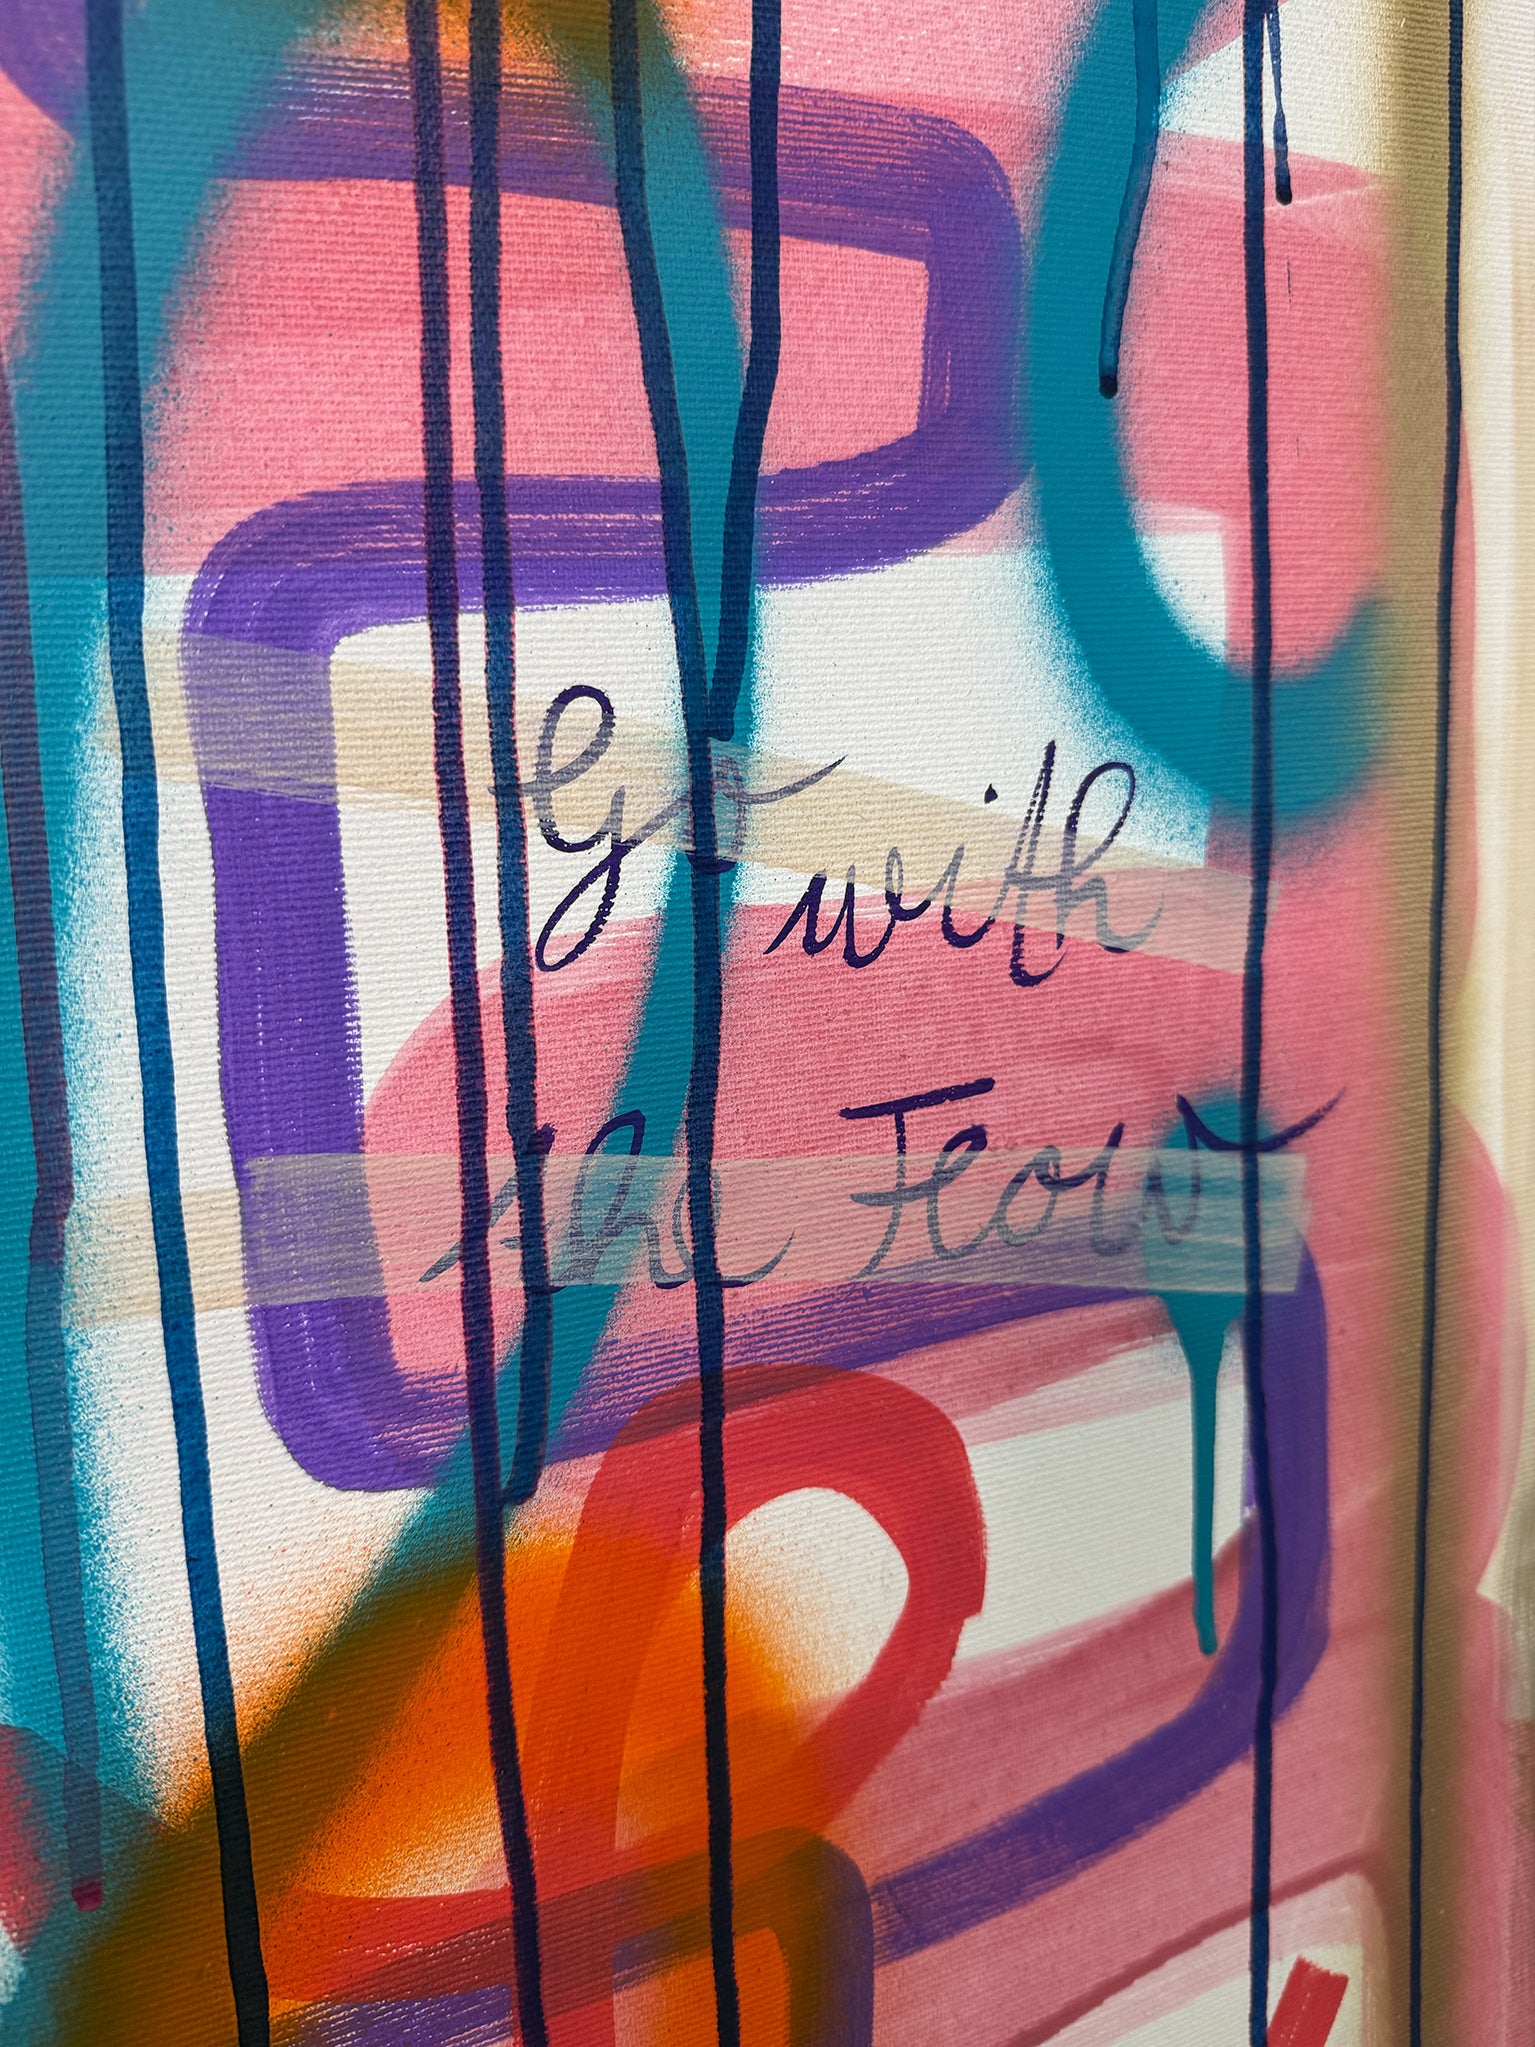 Go with
the Flow